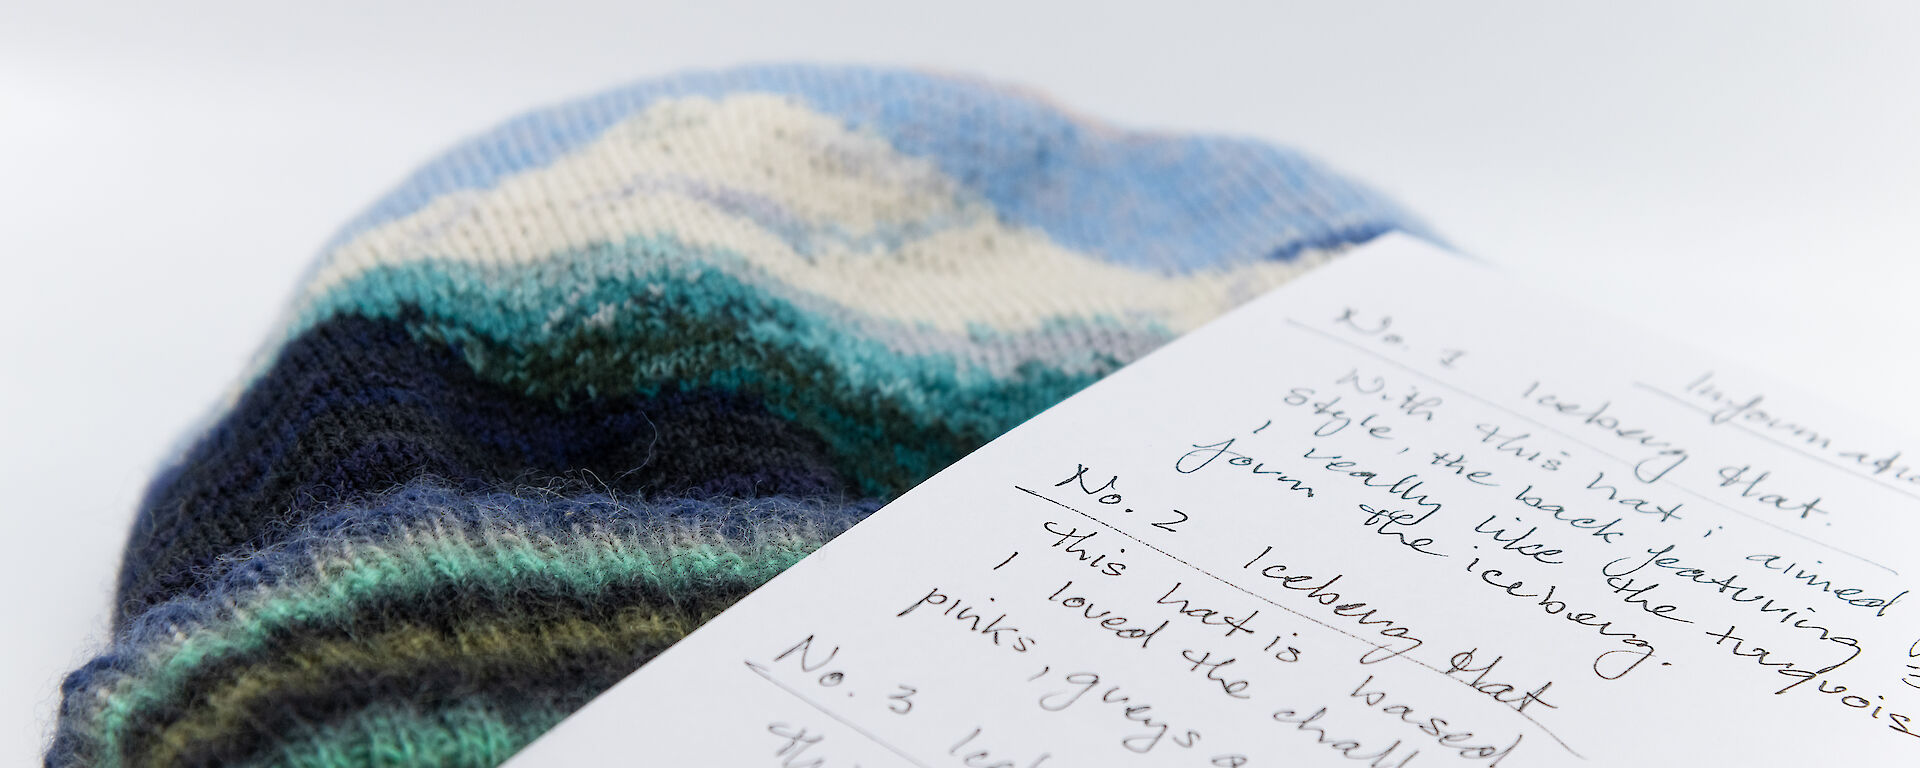 No. 1 Iceberg Hat.
With this hat i aimed
style, the back featuring
I really like the turquois
form the iceberg.
No. 2 Iceberg Hat
this hat is based
I loved the
pinks, greys
No. 3